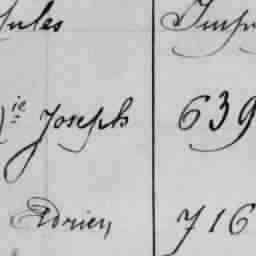 Jules
ie Joseph 639
Adrien 716